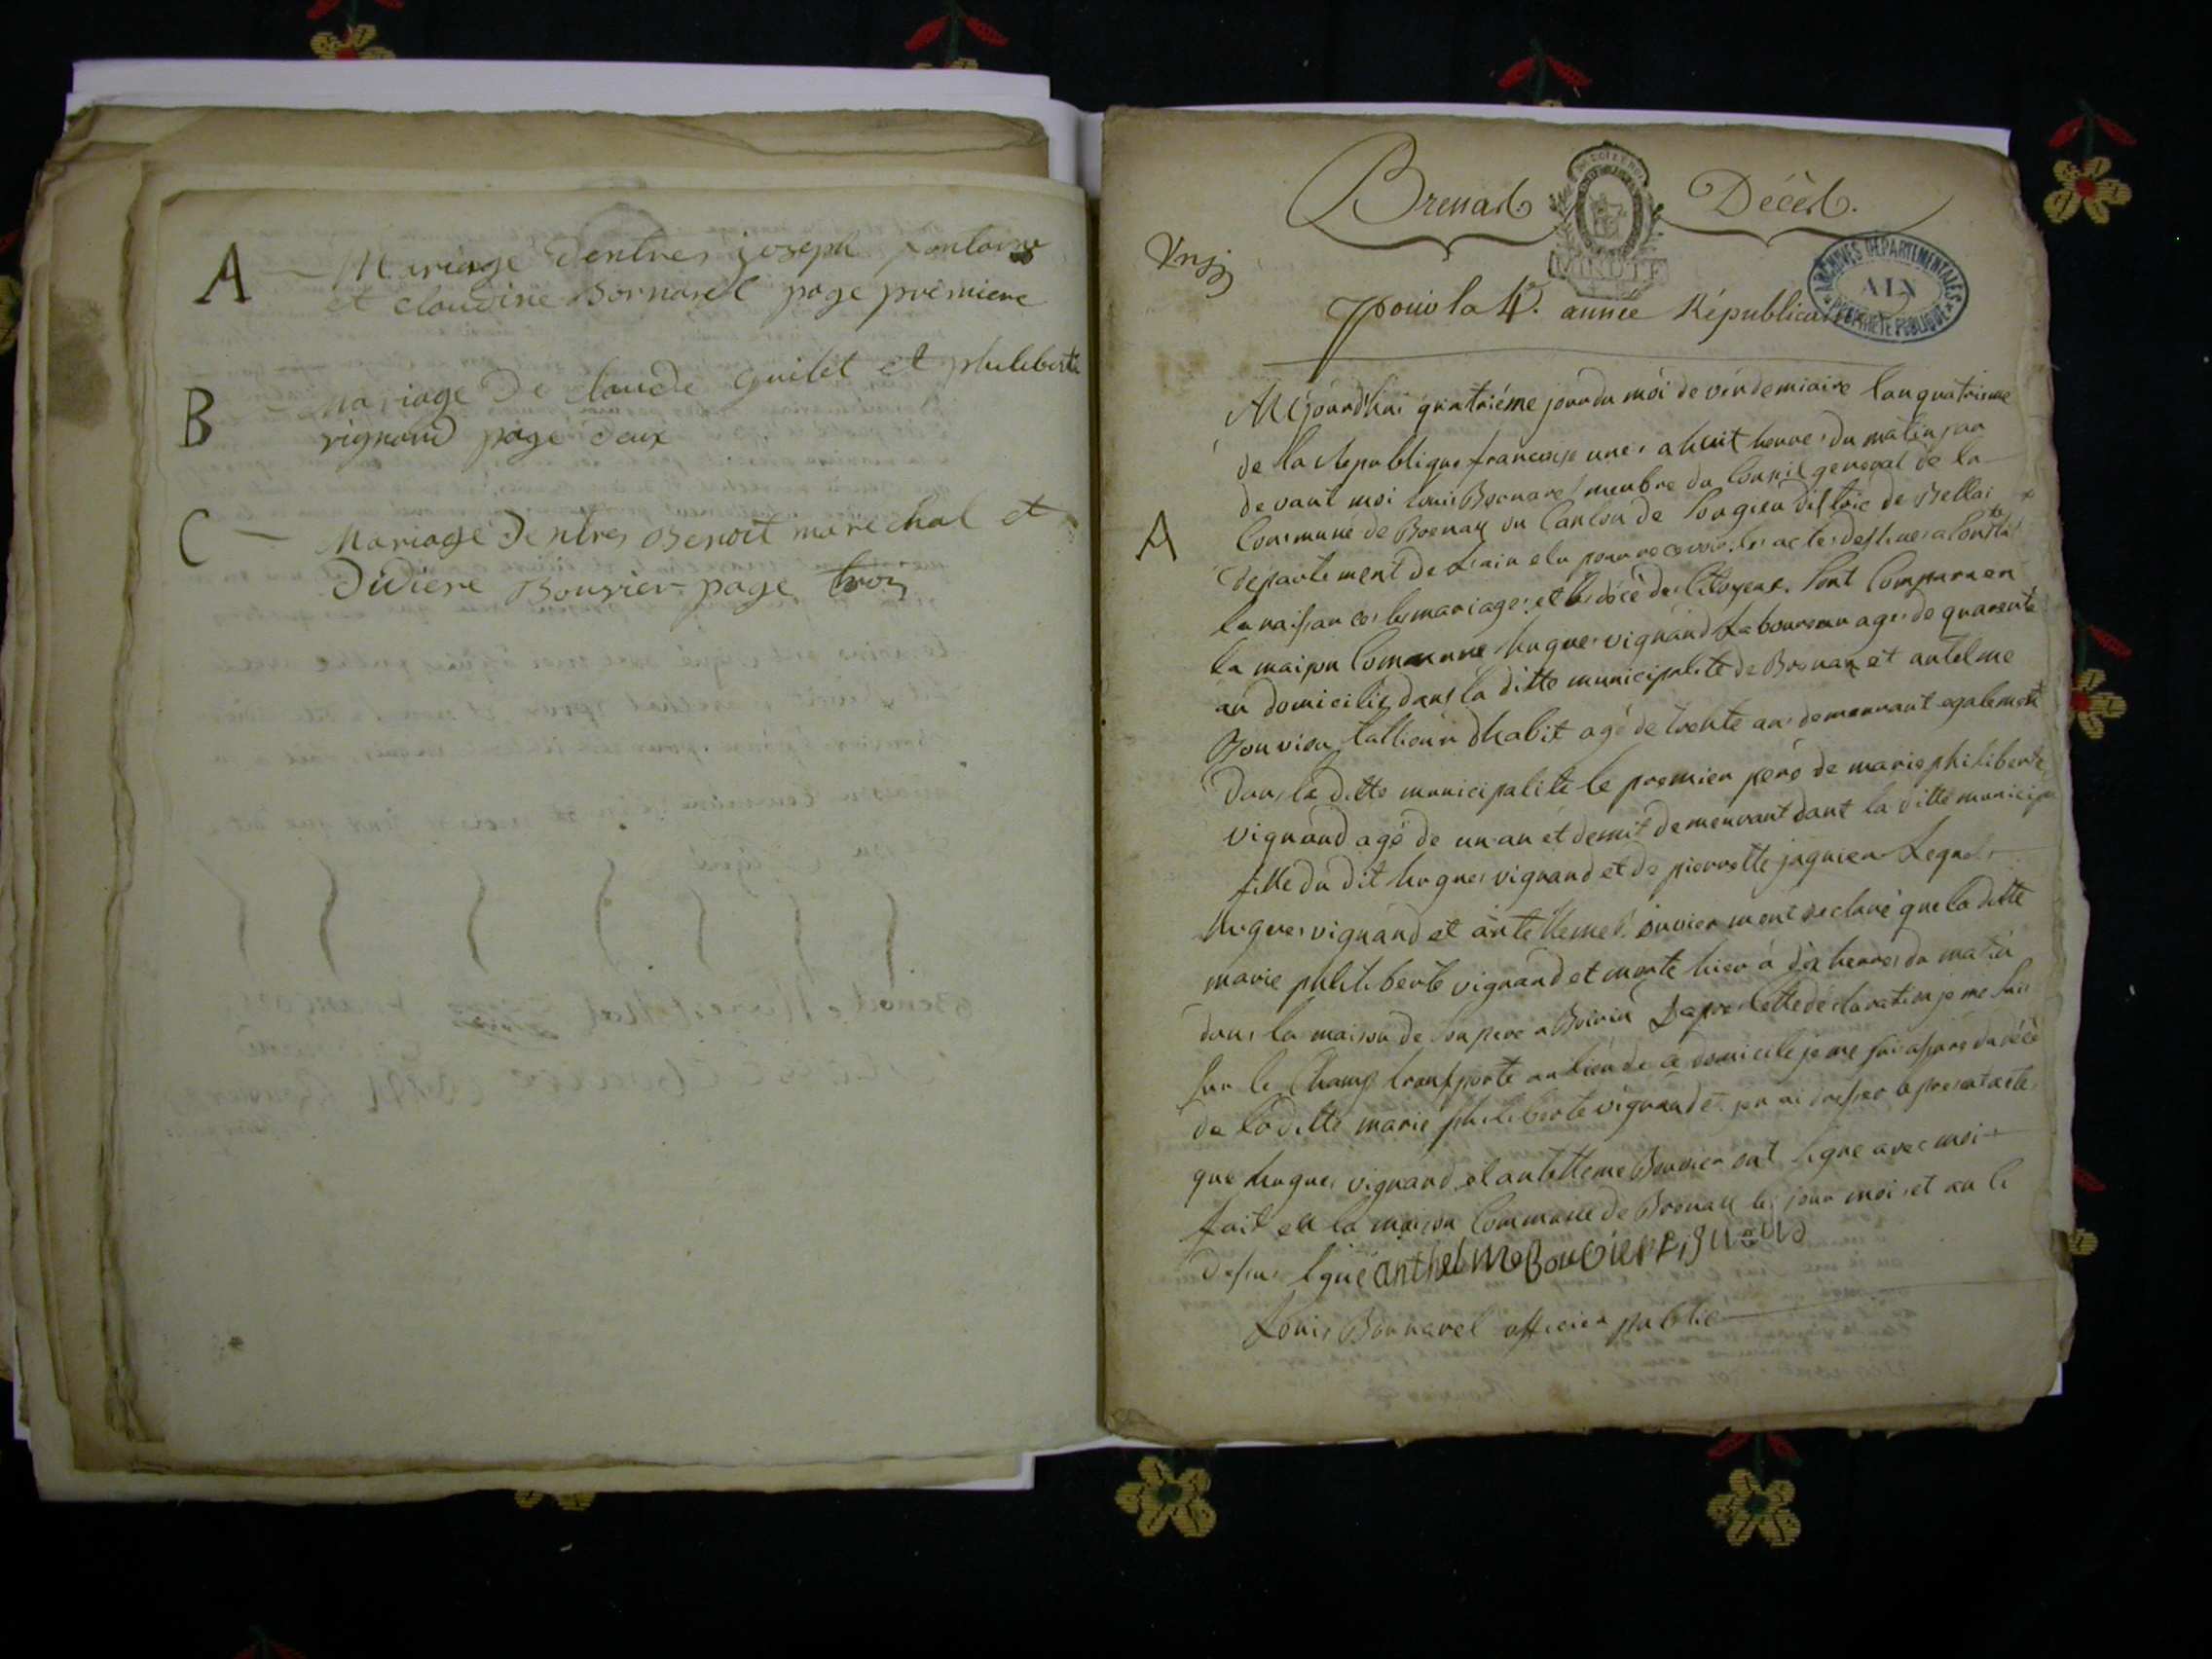 A — Mariage Dentres joseph fontaine
et claudine Bornarel page premiere
B — Mariage De claude Guilet et philiberte
vignand page deux
C — Mariage Dentres Benoit marechal et
Didiere Bouvier page trois
Brenas Décès.
MINUTE
ARCHIVES DÉPARTEMENTALES
AIN
PROPRIÉTÉ PUBLIQUE
Pour la 4e. année Républicaine
A
Aujourd'hui quatriéme jour du moi de vendemiaire lan quatrieme
de la Republique francaise une a huit heures du matin par
devant moi Louis Bornarel menbre du Conseil general de la
Commune de Brenaz du Canton de Songieu distric de Bellai
departement de Lain elu pour recevoir les actes destines a Constaté
la naissances les mariages et les décè des Citoyens. Sont Comparu en
la maison Commune hugues vignand Laboureur ages de quarente
an domicilié dans la ditte municipalité de Brenaz et antelme
Bouvier tallieur dhabit agé de trente ans demeurant egalement
Dans la ditte municipalité le premier pere de marie philiberte
vignand agé de un an et demit demeurant dans la ditte municipa
fille du dit hugues vignand et de pierrette juquier Lequel
hugues vignand et antelleme Bouvier mont declaré que la ditte
marie philiberte vignand et morte hier à dix heures du matin
dans la maison de son pere a Boirin Dapres cette déclaration je me suis
sur le Champ transporté au lieu de ce domicile je me suis assuré du décè
de la ditte marie philiberte vignand et jen ai dressé le present acte
que hugues vignand et antelleme Bouvier ont signe avec moi
fait en la maison Commune de Brenaz les jour moi et an ci
dessus signé anthelme Bouvier vignand
Louis Bornarel officier public